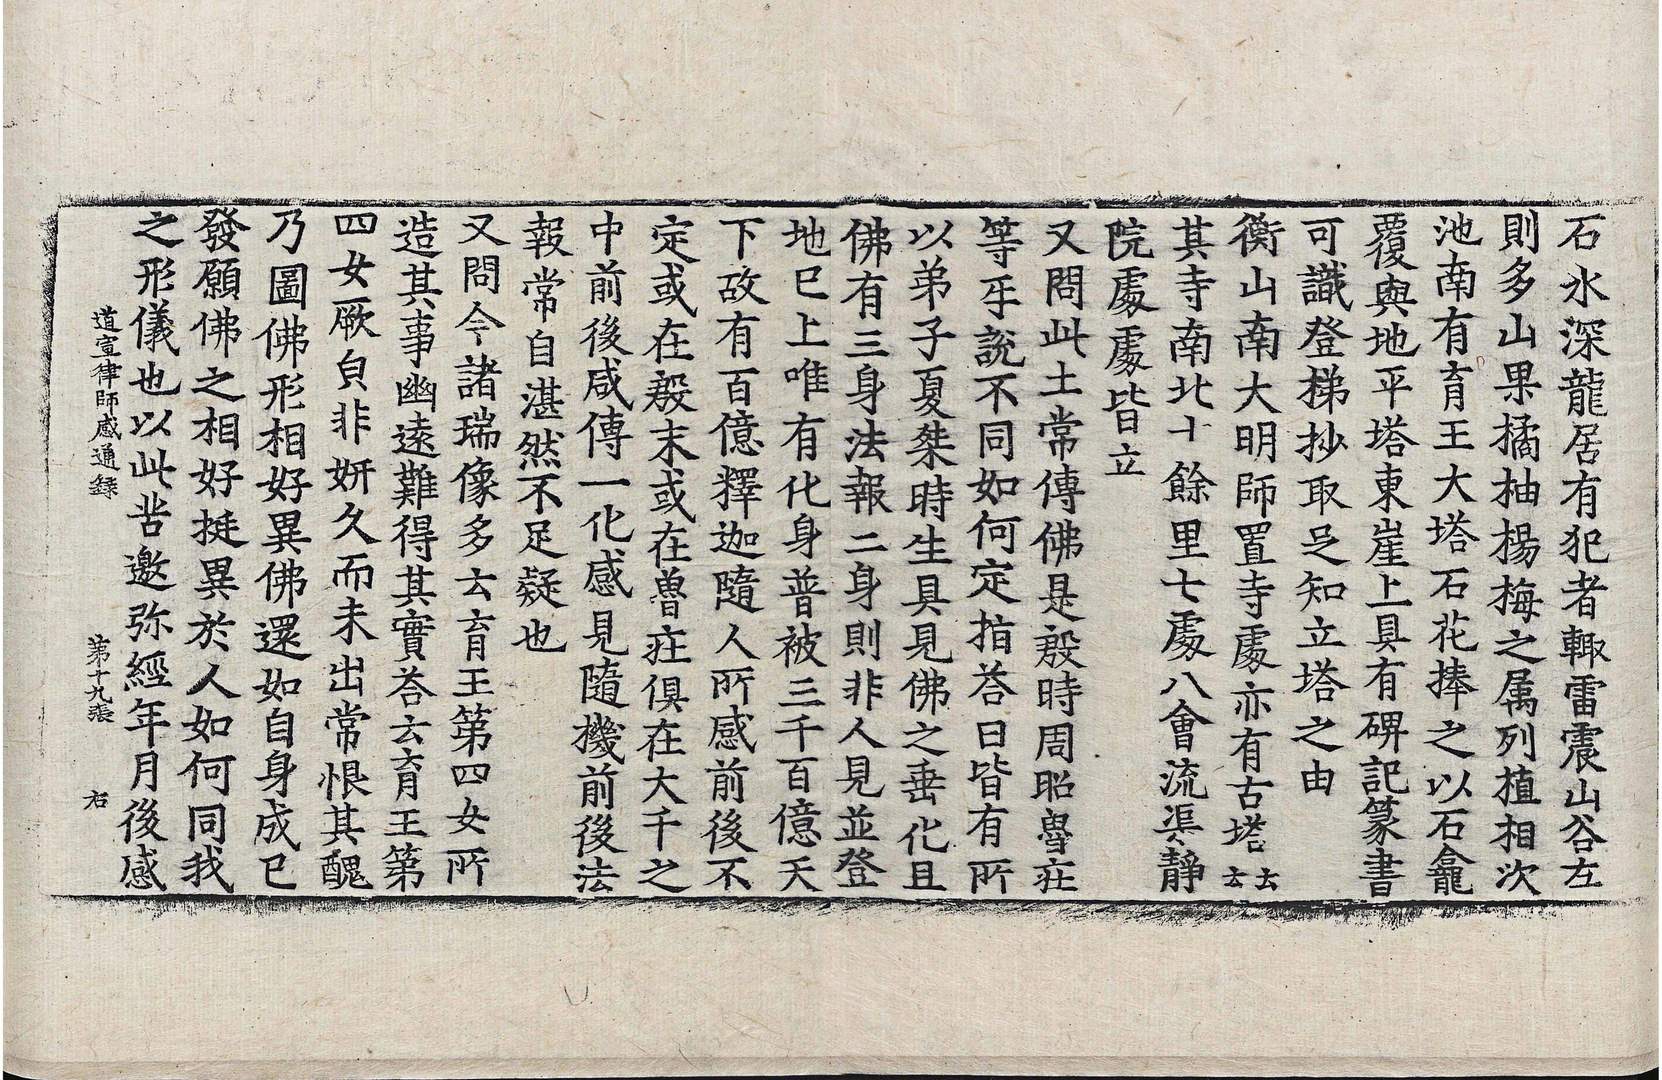 石水深龍居有犯者輙雷震山谷左
則多山果橘柚楊梅之属列植相次
池南有育王大塔石花捧之以石龕
覆與地平塔東崖上具有碑記篆書
可識登梯抄取足知立塔之由
衡山南大明師置寺處亦有古塔云云
其寺南北十餘里七處八會流渠靜
院處處皆立
又問此土常傳佛是殷時周昭魯莊
等乎說不同如何定指荅曰皆有所
以弟子夏桀時生具見佛之垂化且
佛有三身法報二身則非人見並登
地已上唯有化身普被三千百億天
下故有百億釋迦隨人所感前後不
定或在殷末或在魯莊俱在大千之
中前後咸傳一化感見隨機前後法
報常自湛然不足疑也
又問今諸瑞像多云育王第四女所
造其事幽遠難得其實荅云育王第
四女厥皃非妍久而未出常恨其醜
乃圖佛形相好異佛還如自身成已
發願佛之相好挺異於人如何同我
之形儀也以此苦邀弥經年月後感
道宣律師感通録 第十九張 右